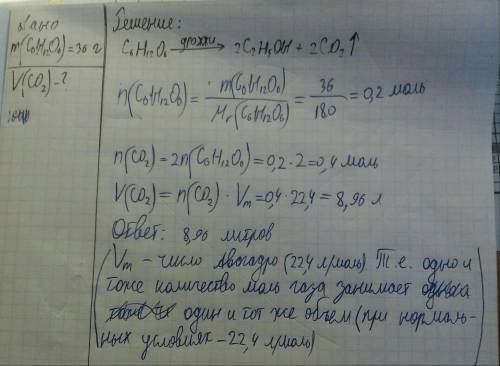 Дано
m(C6H12O6)=36 г
V(CO2)-?
Решение:
C6H12O6 дрожжи → 2C2H5OH + 2CO2↑
n(C6H12O6) = m(C6H12O6)/Mr(C6H12O6) = 36/180 = 0,2 моль
n(CO2)=2n(C6H12O6)=0,2·2=0,4 моль
V(CO2)=n(CO2)·Vm=0,4·22,4=8,96 л
Ответ: 8,96 литров
(Vm - число Авогадро (22,4 л/моль) Т.е. одно и
тоже количество моль газа занимает
один и тот же объем (при нормаль-
ных условиях - 22,4 л/моль)